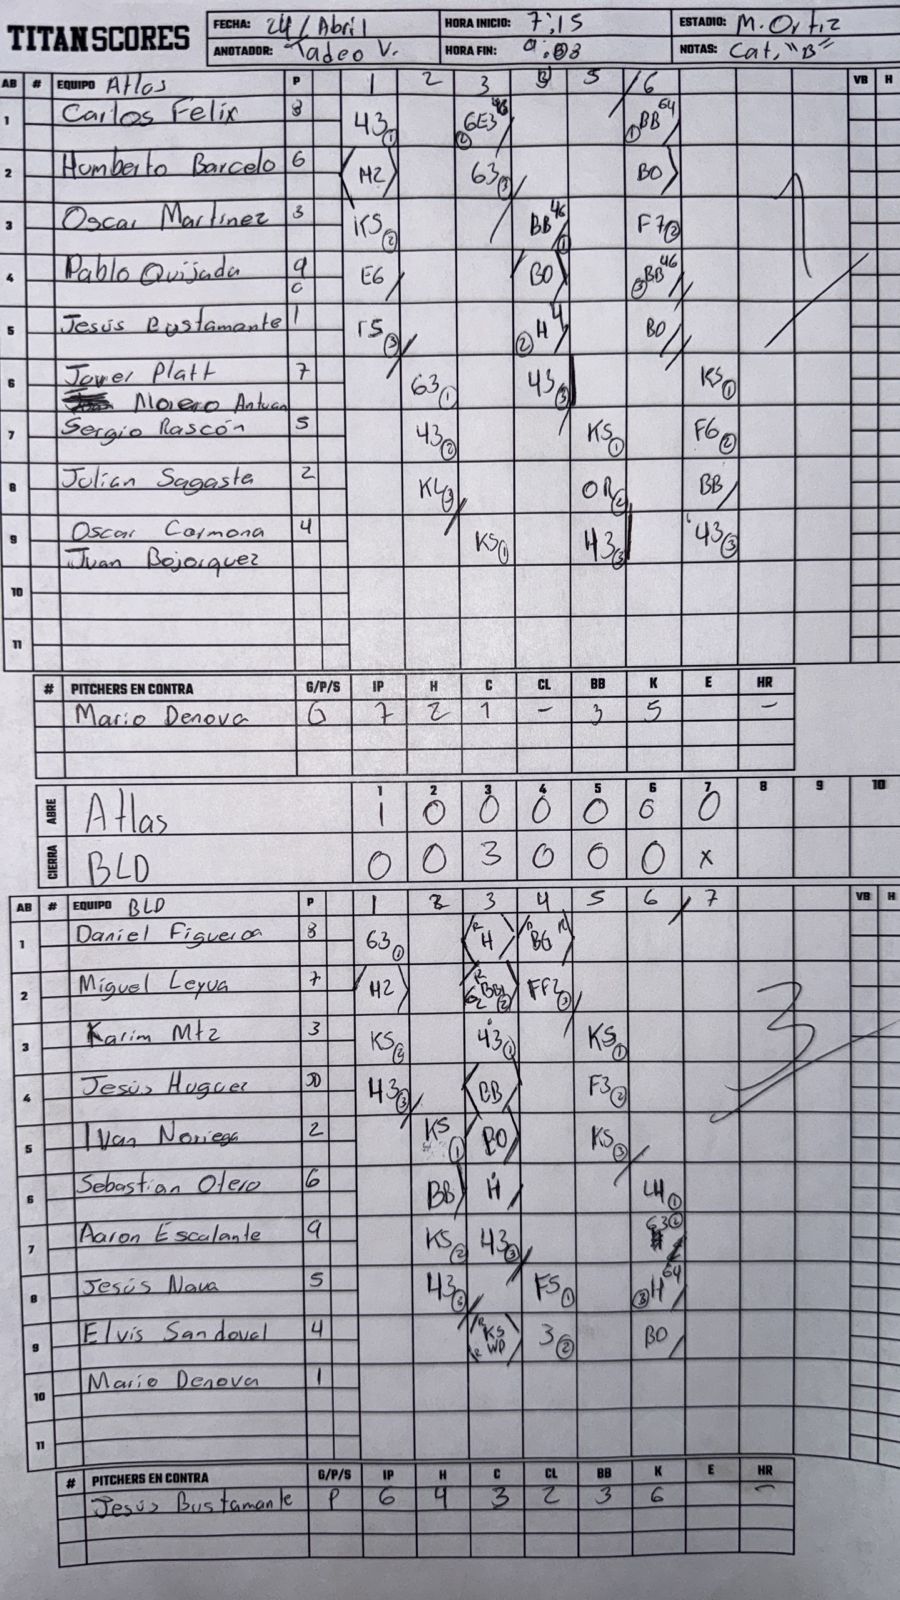 TITANSCORES
FECHA: 24/Abril HORA INICIO: 7:15 ESTADIO: M. Ortiz
ANOTADOR: Tadeo V. HORA FIN: NOTAS: Cat. "B"
AB # EQUIPO Atlas P 1 2 3 5 6 VB H
1 Carlos Felix 8 43① 6E3 ① BB 64
2 Humberto Barcelo 6 H2 63③ BO
3 Oscar Martinez 3 KS② BB 46 ① F7②
4 Pablo Quijada 9 E6 BO ③ BB 46
5 Jesús Bustamante 1 ② H 4 BO
6 Jover Platt 7 63① 43③ KS①
Moreno Antuan
7 Sergio Rascón 5 43② KS① F6②
8 Julian Sagasta 2 OR② BB
9 Oscar Carmona 4 KS① H3③ 43③
Juan Bojorquez
10
11
1
# PITCHERS EN CONTRA G/P/S IP H C CL BB K E HR
Mario Denova G 7 2 1 - 3 5 -
1 2 3 4 5 6 7 8 9 10
ABRE Atlas 1 0 0 0 0 0 0
CIERRA BLD 0 0 3 0 0 0 x
AB # EQUIPO BLD P 1 2 3 4 5 6 7 VB H
1 Daniel Figueroa 8 63① H
2 Miguel Leyva 7 H2 FF2③
3 Karim Mtz 3 KS② 43① KS①
4 Jesús Huguez 43③ BB F3②
5 Ivan Noriega 2 KS① BO KS③
6 Sebastian Otero 6 BB H ①
7 Aaron Escalante 9 KS② 43③ 63②
8 Jesús Nava 5 43③ FS① ③ H 64
9 Elvis Sandoval 4 KS WD 3② BO
10 Mario Denova 1
11
3
# PITCHERS EN CONTRA G/P/S IP H C CL BB K E HR
Jesús Bustamante P 6 4 3 2 3 6 -